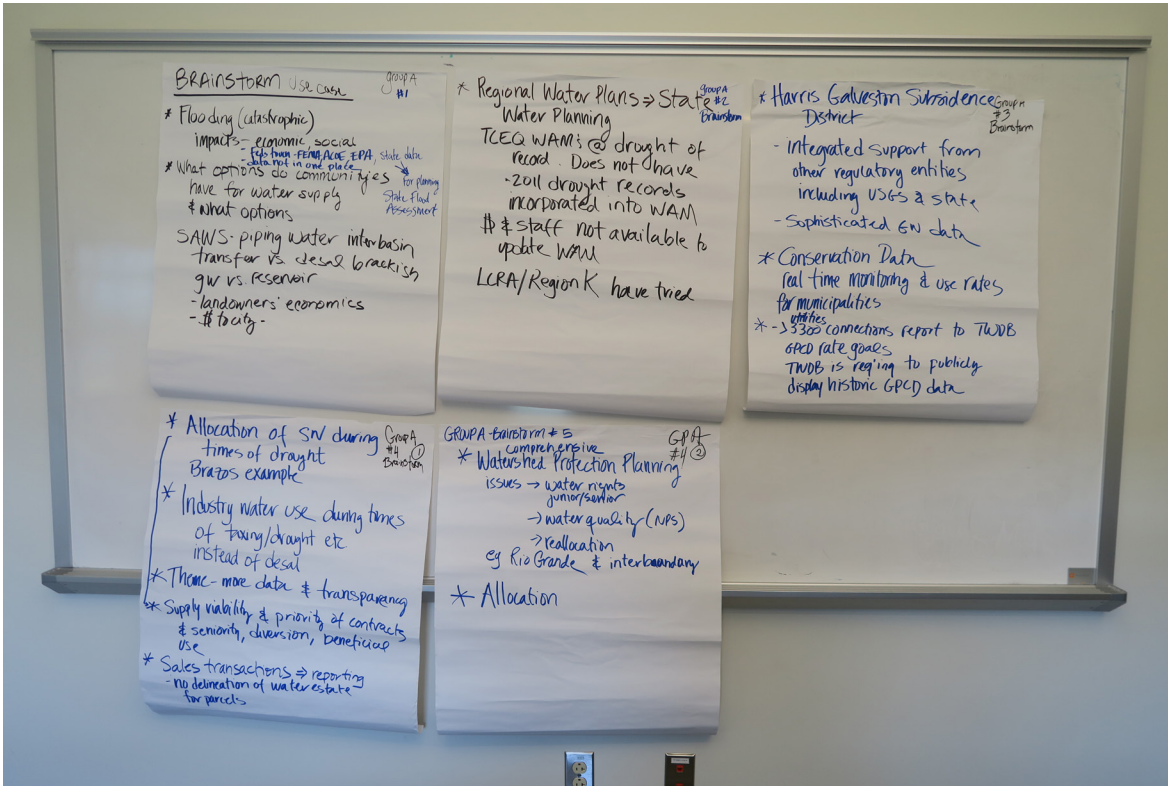 BRAINSTORM use case
group A
#1
* Flooding (catastrophic)
impacts - economic, social
- FEMA, ACOE, EPA, state data
- data not in one place
for planning
State Flood
Assessment
* What options do communities
have for water supply
& what options
SAWS - piping water interbasin
transfer vs. desal brackish
gw vs. reservoir
- landowners' economics
- $ to city -
* Regional Water Plans ⇒ State
Water Planning
group A
#2
Brainstorm
TCEQ WAM's @ drought of
record. Does not have
- 2011 drought records
incorporated into WAM
$ & staff not available to
update WAM
LCRA/Region K have tried
* Harris Galveston Subsidence
District
Group A
#3
Brainstorm
- integrated support from
other regulatory entities
including USGS & state
- Sophisticated GW data
* Conservation Data
real time monitoring & use rates
for municipalities
utilities
* - >3300 connections report to TWDB
GPCD rate goals
TWDB is req'ing to publicly
display historic GPCD data
* Allocation of SW during
times of drought
Brazos example
Group A
#4 ①
Brainstorm
* Industry water use during times
of taxing/drought etc
instead of desal
* Theme - more data & transparency
* Supply viability & priority of contracts
& seniority, diversion, beneficial
use
* Sales transactions ⇒ reporting
- no delineation of water estate
for parcels
GROUP A - Brainstorm # 5
GPA
#4 ②
comprehensive
* Watershed Protection Planning
issues → water rights
junior/senior
→ water quality (NPS)
→ reallocation
eg Rio Grande & interboundary
* Allocation